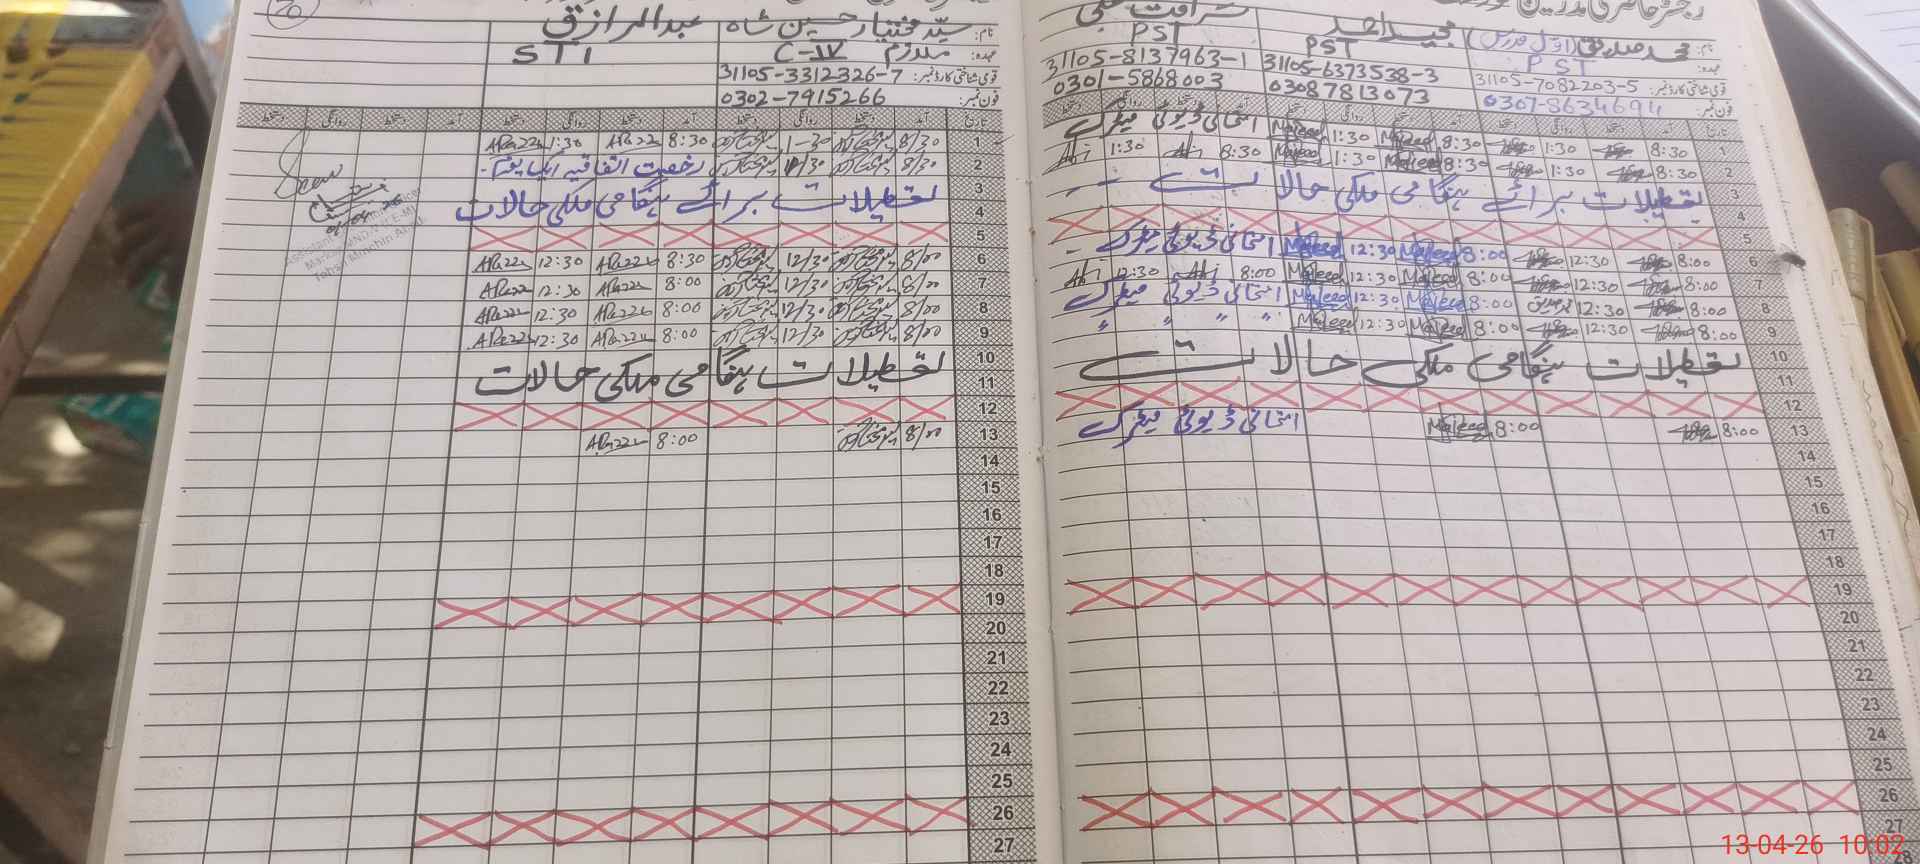 رجسٹر حاضری مدرسین
نام: محمد صدیق (اوّل مدرس) مجید احمد شرافت علی
عہدہ: PST PST PST
قومی شناختی کارڈ نمبر: 31105-7082203-5 31105-6373538-3 31105-8137963-1
فون نمبر: 0307-8634694 03087813073 0301-5868003
تاریخ آمد دستخط روانگی دستخط آمد دستخط روانگی دستخط آمد دستخط روانگی دستخط
1 8:30 1:30 8:30 Majeed 1:30 Majeed امتحانی ڈیوٹی میٹرک
2 8:30 1:30 8:30 Majeed 1:30 Majeed 8:30 1:30
3 تعطیلات برائے ہنگامی ملکی حالات
4
5
6 8:00 12:30 8:00 Majeed 12:30 Majeed امتحانی ڈیوٹی میٹرک
7 8:00 12:30 8:00 Majeed 12:30 Majeed 8:00 12:30
8 8:00 12:30 8:00 Majeed 12:30 Majeed امتحانی ڈیوٹی میٹرک
9 8:00 12:30 8:00 Majeed 12:30 Majeed " " " "
10 تعطیلات ہنگامی ملکی حالات
11
12
13 8:00 8:00 Majeed امتحانی ڈیوٹی میٹرک
14
15
16
17
18
19
20
21
22
23
24
25
26
27
28
نام: سیّد مختیار حسین شاہ عبدالرازق
عہدہ: ملازم C-IV STI
قومی شناختی کارڈ نمبر: 31105-3312326-7
فون نمبر: 0302-7915266
تاریخ آمد دستخط روانگی دستخط آمد دستخط روانگی دستخط آمد دستخط روانگی دستخط
1 8/30 1-30 8:30 1:30
2 8/30 1/30 رخصت اتفاقیہ ایک یوم
3 تعطیلات برائے ہنگامی ملکی حالات
4
5
6 8/00 12/30 8:30 12:30
7 8/00 12/30 8:00 12:30
8 8/00 12/30 8:00 12:30
9 8/00 12/30 8:00 12:30
10 تعطیلات ہنگامی ملکی حالات
11
12
13 8/00 8:00
14
15
16
17
18
19
20
21
22
23
24
25
26
27
Seen
Assistant
Tehsil Minchin Abad
13-04-26 10:02